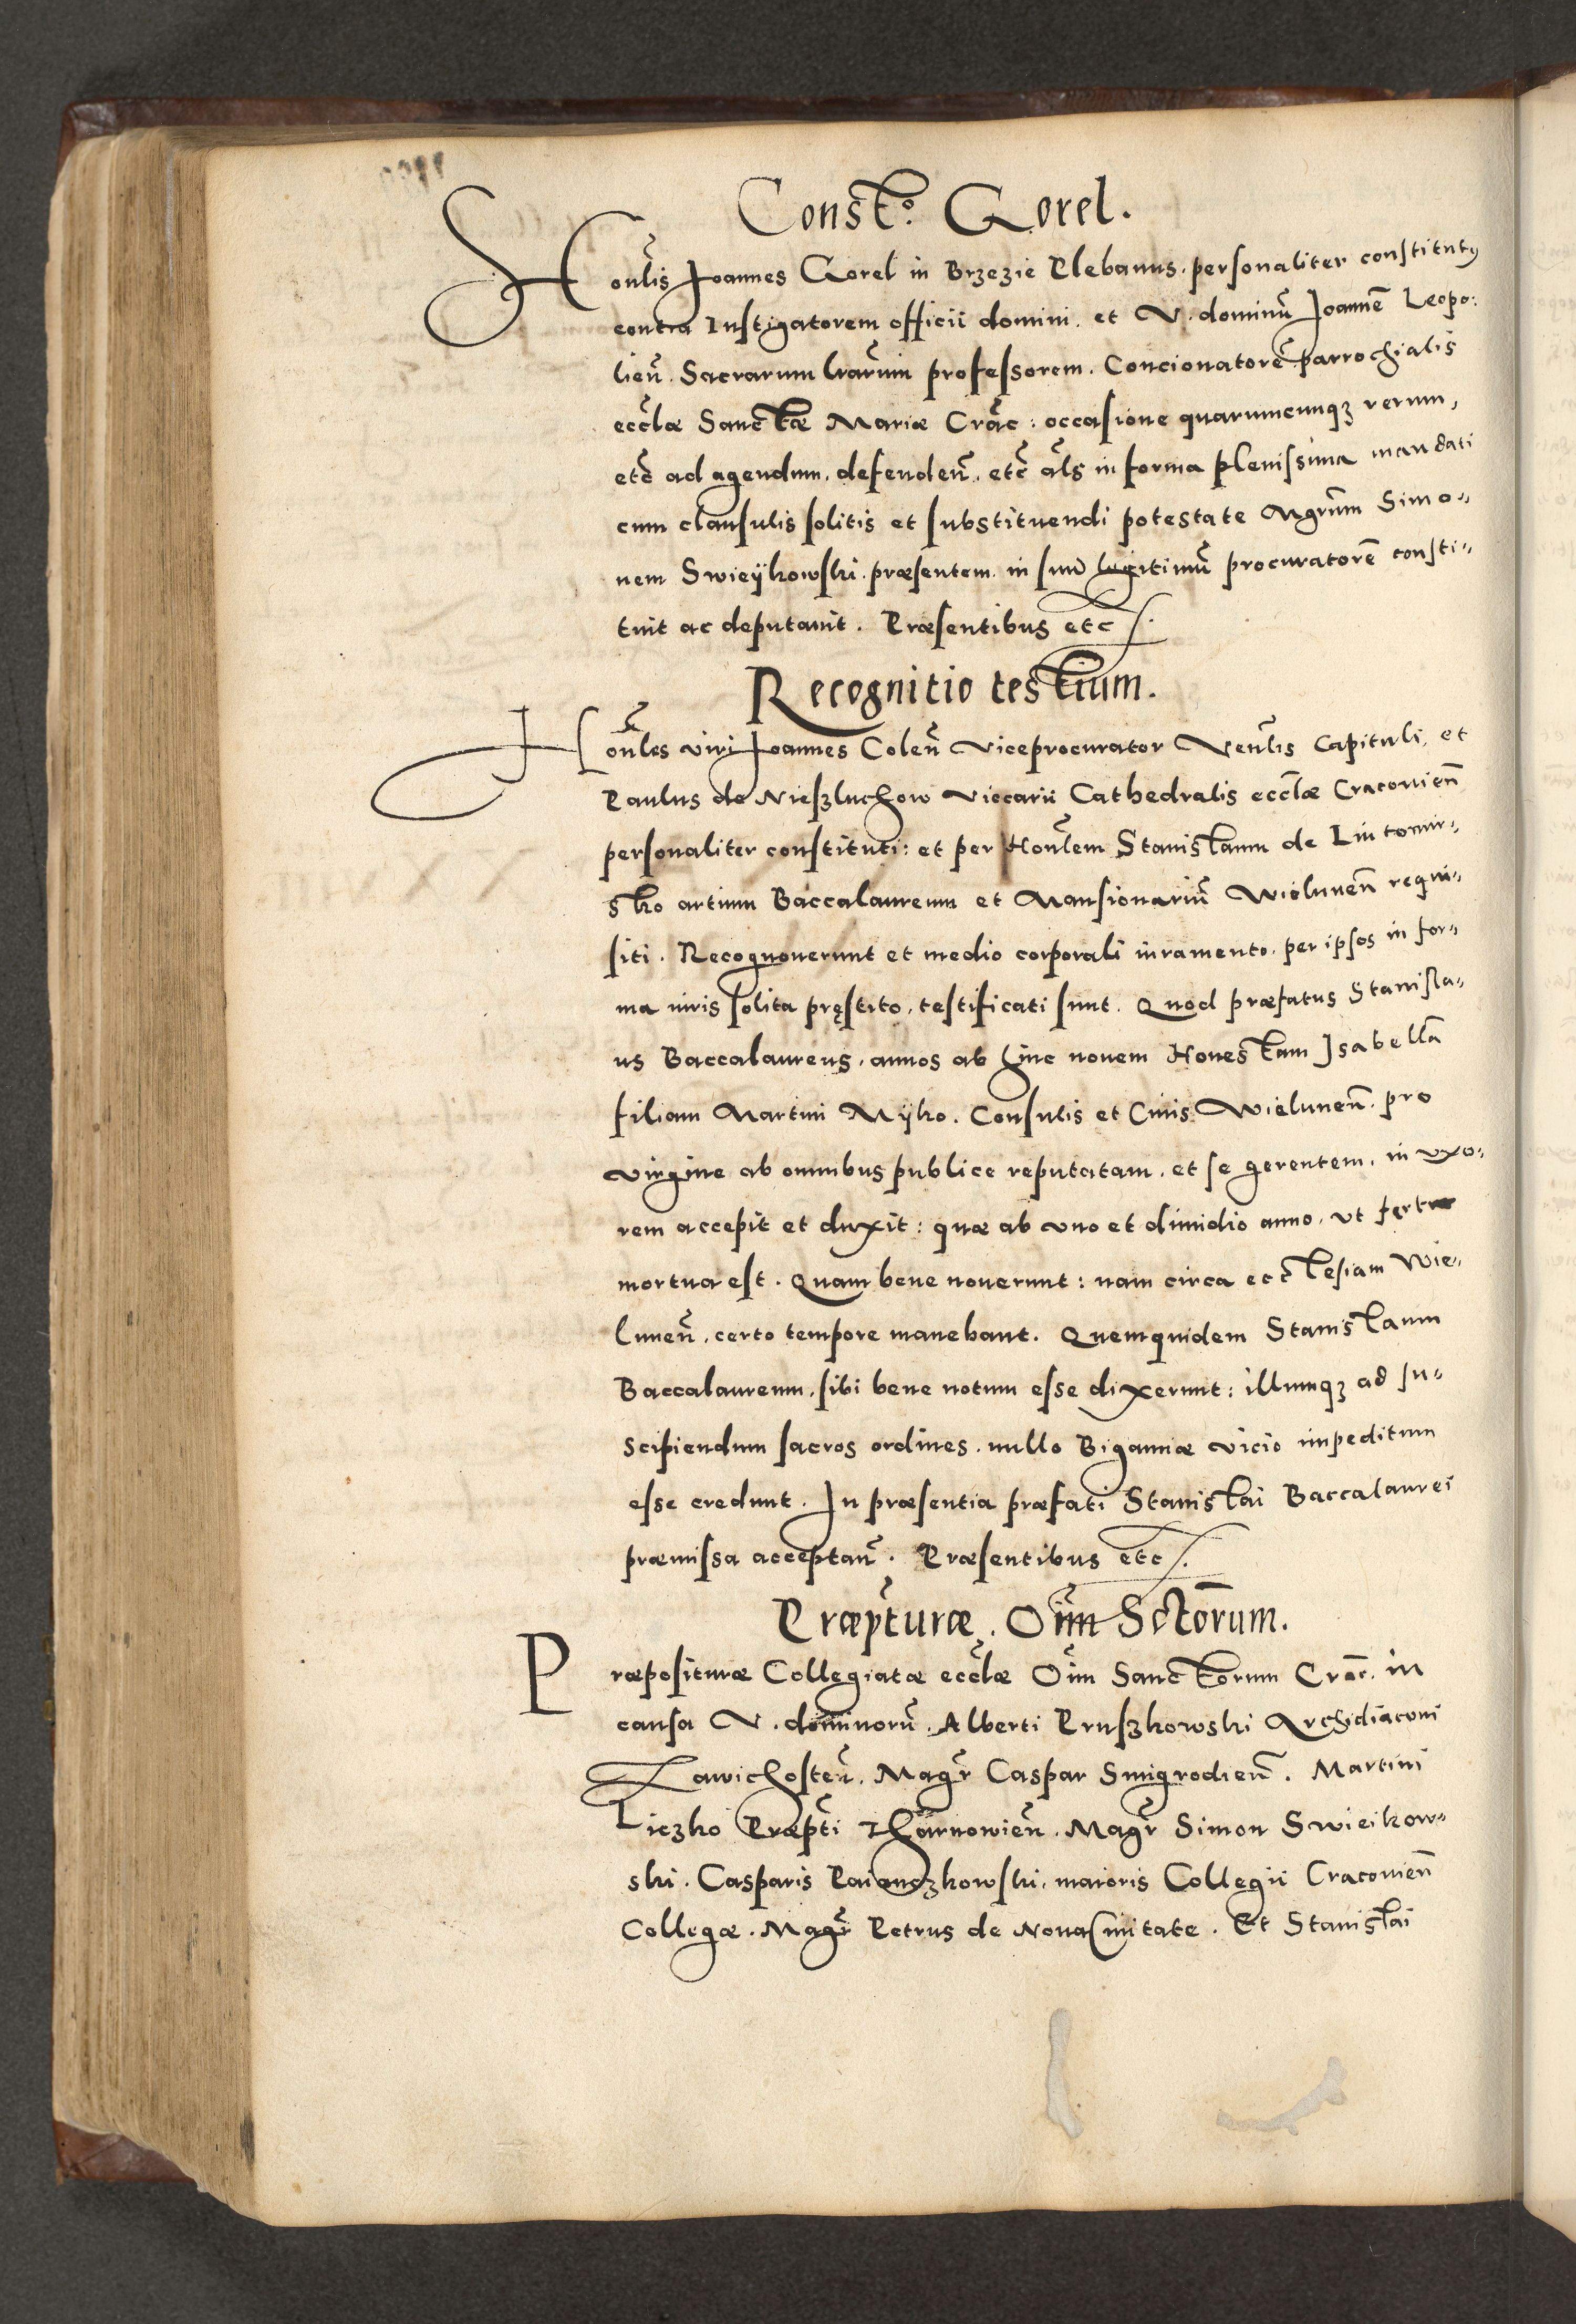 Const͠o. Gorel.
Hon͠lis Joannes Gorel in Brzezie Plebanus. personaliter constitutꝰ
contra Instigatorem officii domini. et V. dominũ Joannẽ Leopo:
lien͠. Sacrarum lr͠arum professorem. Concionatorẽ parrochialis
eccl͠æ Sanctæ Mariæ Crac͠: occasione quarumcunqꝫ rerum,
etc͠ ad agendum, defenden͠. etc͠ al͠s in forma plenissima mandati
cum clausulis solitis et substituendi potestate Mgr͠um Simo„
nem Swieÿkowski. præsentem. in suũ legitimũ procuratorẽ consti„
tuit ac deputauit. Præsentibus etc.
Recognitio testium.
Hon͠les viri Joannes Colen͠ Viceprocurator Ven͠lis Capituli, et
Paulus de Nieszluchow Viccarii Cathedralis eccl͠æ Cracouien͠
personaliter constituti: et per Hon͠lem Stanislaum de Lutomir„
sko artium Baccalaureum et Mansionariũ Wielunen͠ requi„
siti. Recognouerunt et medio corporali iuramento. per ipsos in for„
ma iuris solita pręstito, testificati sunt. Quod præfatus Stanisla„
us Baccalaureus, annos ab hinc nouem Honestam Isabellã
filiam Martini Mÿko. Consulis et Ciuis Wielunen͠. pro
virgine ab omnibus publice reputatam, et se gerentem, in vxo„
rem accepit et duxit: quæ ab vno et dimidio anno, vt fertur
mortua est. Quam bene nouerunt: nam circa ecclesiam Wie„
lunen͠. certo tempore manebant. Quemquidem Stanislaum
Baccalaureum, sibi bene notum esse dixerunt: illumqꝫ ad su„
scipiendum sacros ordines. nullo Bigamiæ vicio impeditum
esse credunt. In præsentia præfati Stanislai Baccalaurei
præmissa acceptan͠. Præsentibus etc.
Præp͠turæ. Oi͠m Sct͠orum.
Præposituræ Collegiatæ eccl͠æ Oi͠m Sanctorum Crac͠. in
causa V. dominorũ. Alberti Pruszkowski Archidiaconi
Zawichosten͠. Magr͠ Caspar Smigrodien͠. Martini
Liczko Præp͠ti Tharnowien͠. Magr͠ Simon Swieikow„
ski. Casparis Paianczkowski. maioris Collegii Cracouien͠
Collegæ. Magr͠ Petrus de Noua Ciuitate. Et Stanislai